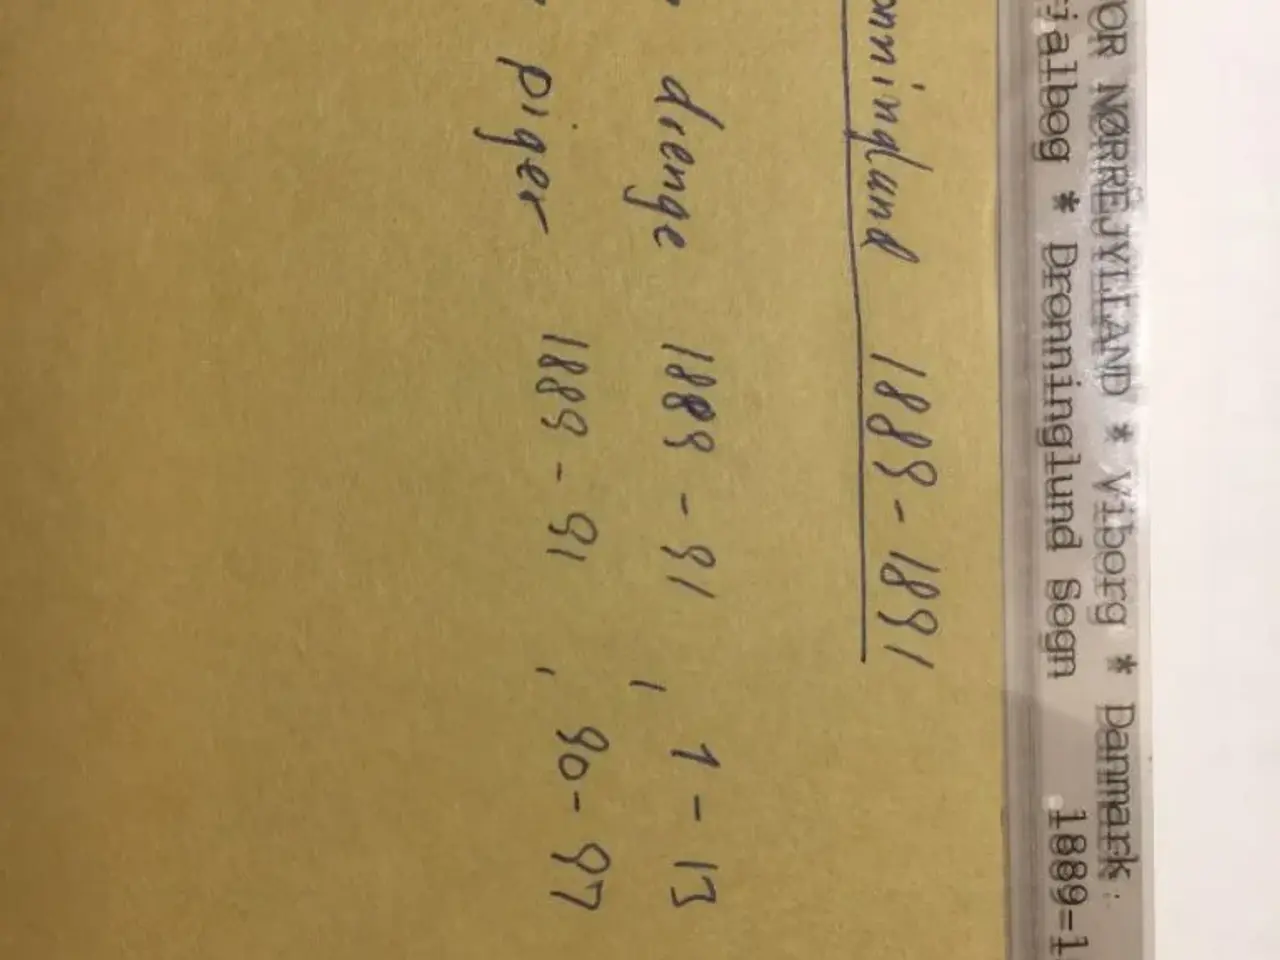 OR NØRREJYLLAND * Viborg * Danmark:
ialbog * Dronninglund Sogn 1889=1
onninglund 1889-1891
drenge 1889-91, 1-13
piger 1889-91, 90-97